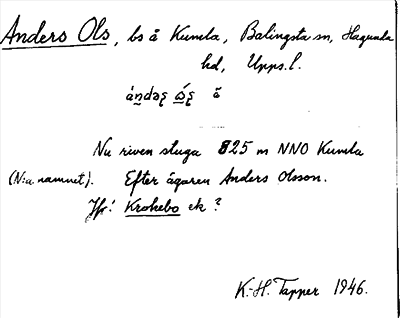 Anders Ols, bs å Kumla, Balingsta sn, Hagunda
hd, Upps. l.
å
Nu riven stuga 825 m NNO Kumla
(N:a namnet). Efter ägaren Anders Olsson.
Jfr! Krokebo ek?
K.-H. Tapper 1946.